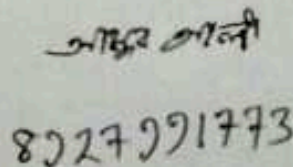 আলী
8927991773